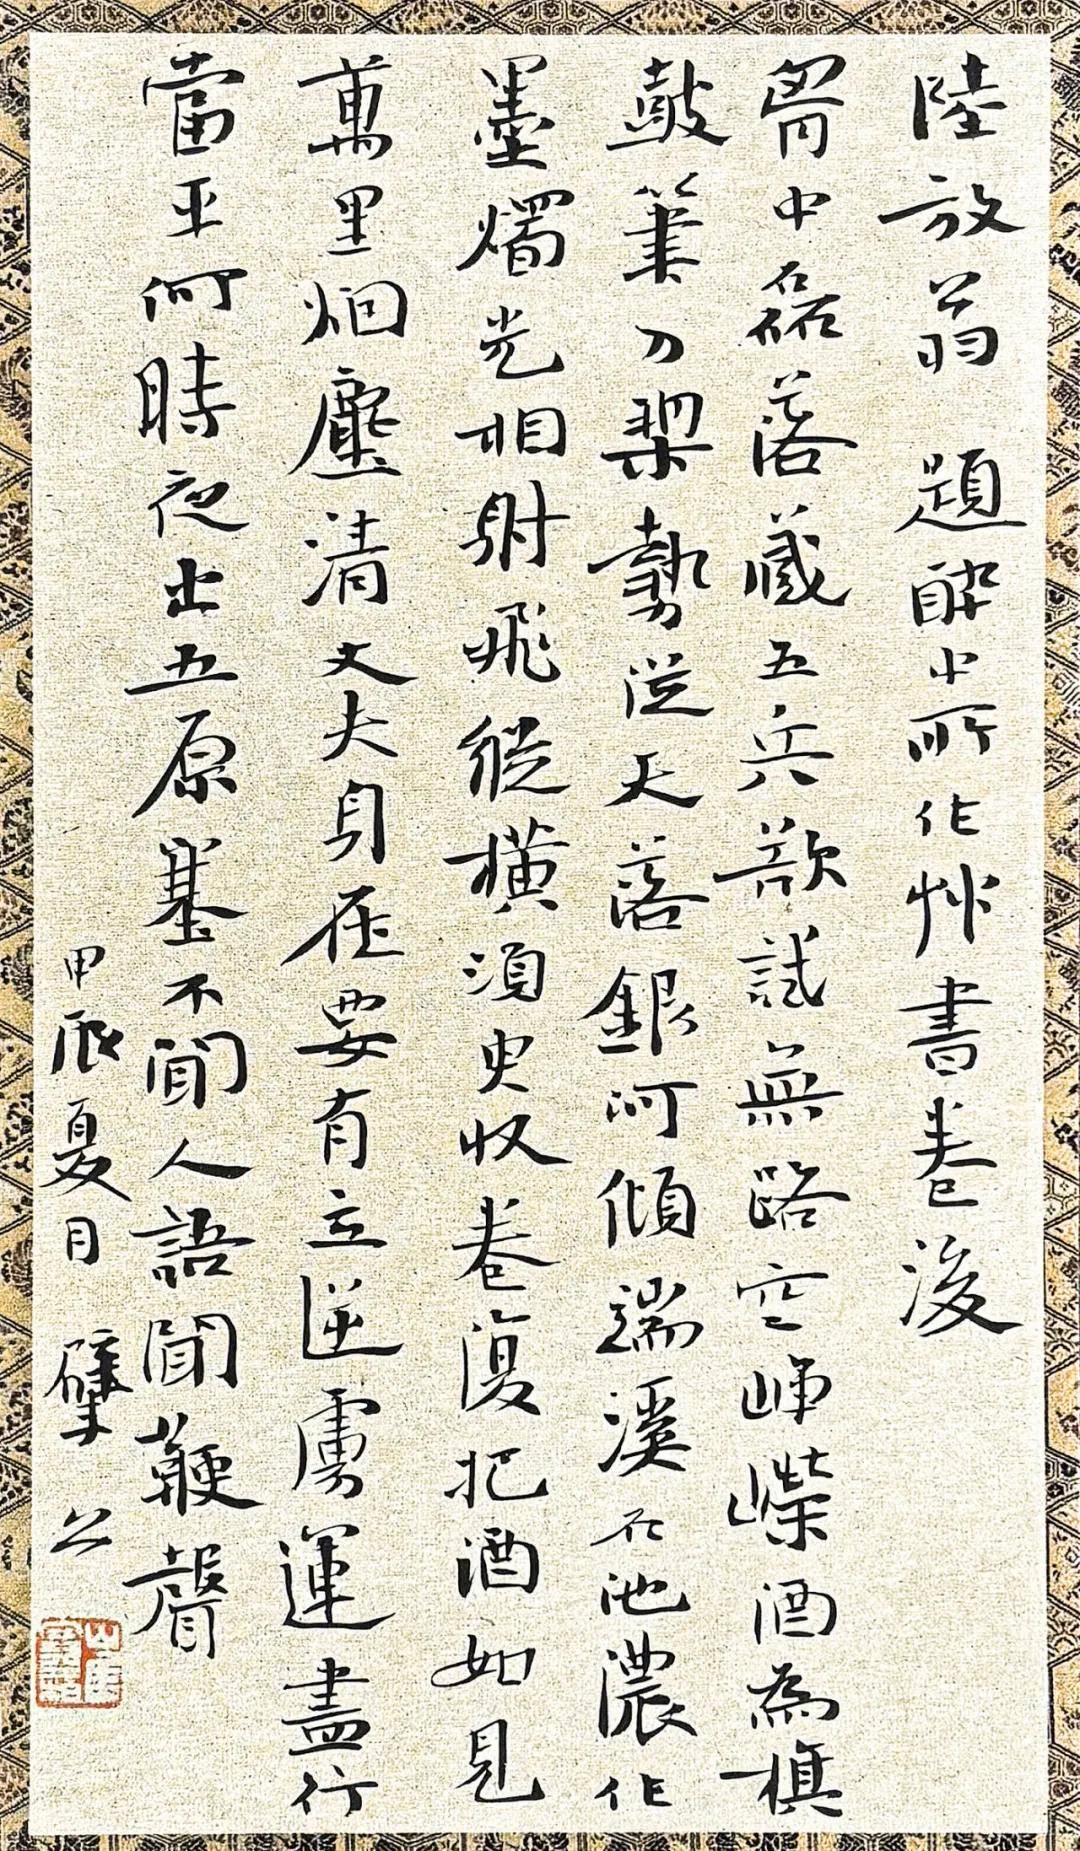 陸放翁 題醉中所作艸書卷後
胷中磊落藏五兵欲試無路空崢嶸酒為旗
鼓筆刀槊勢從天落銀河傾端溪石池濃作
墨燭光相射飛縱橫須臾收卷復把酒如見
萬里烟塵清丈夫身在要有立逆虜運盡行
當平何時夜出五原塞不聞人語聞鞭聲
甲辰夏月 擘公